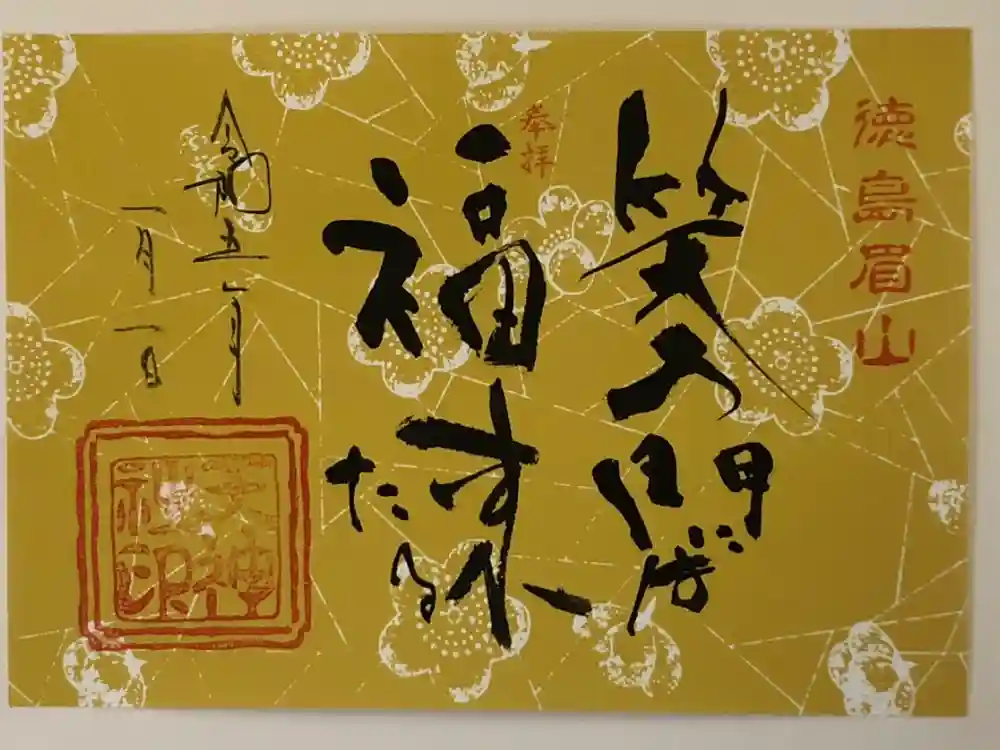 徳島眉山
奉拝
笑う門には
福来たる
令和五年
一月一日
天神
社印